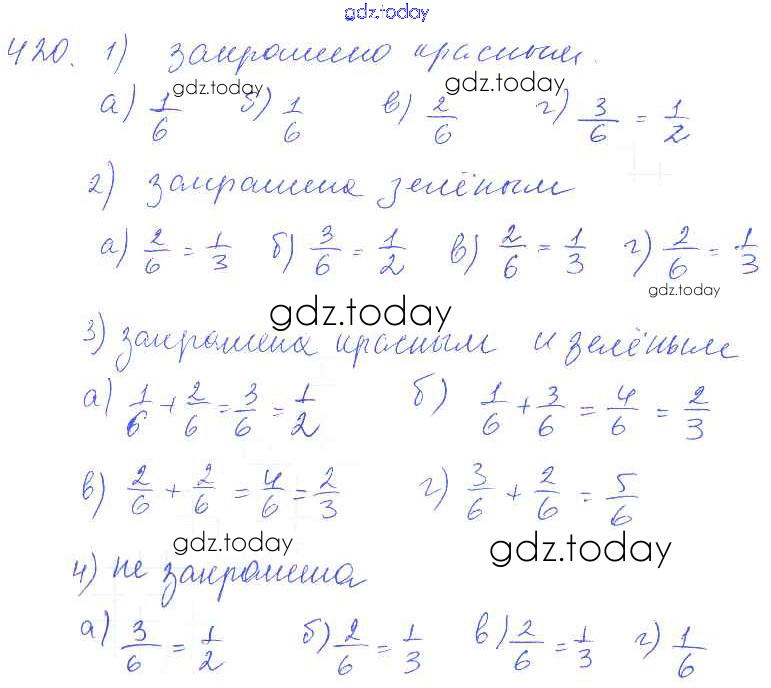 gdz.today
420. 1) закрашено красным.
gdz.today gdz.today
а) 1/6 б) 1/6 в) 2/6 г) 3/6 = 1/2
2) закрашена зелёным
а) 2/6 = 1/3 б) 3/6 = 1/2 в) 2/6 = 1/3 г) 2/6 = 1/3
gdz.today
gdz.today
3) закрашена красным и зелёным
а) 1/6 + 2/6 = 3/6 = 1/2 б) 1/6 + 3/6 = 4/6 = 2/3
в) 2/6 + 2/6 = 4/6 = 2/3 г) 3/6 + 2/6 = 5/6
gdz.today gdz.today
4) не закрашена
а) 3/6 = 1/2 б) 2/6 = 1/3 в) 2/6 = 1/3 г) 1/6